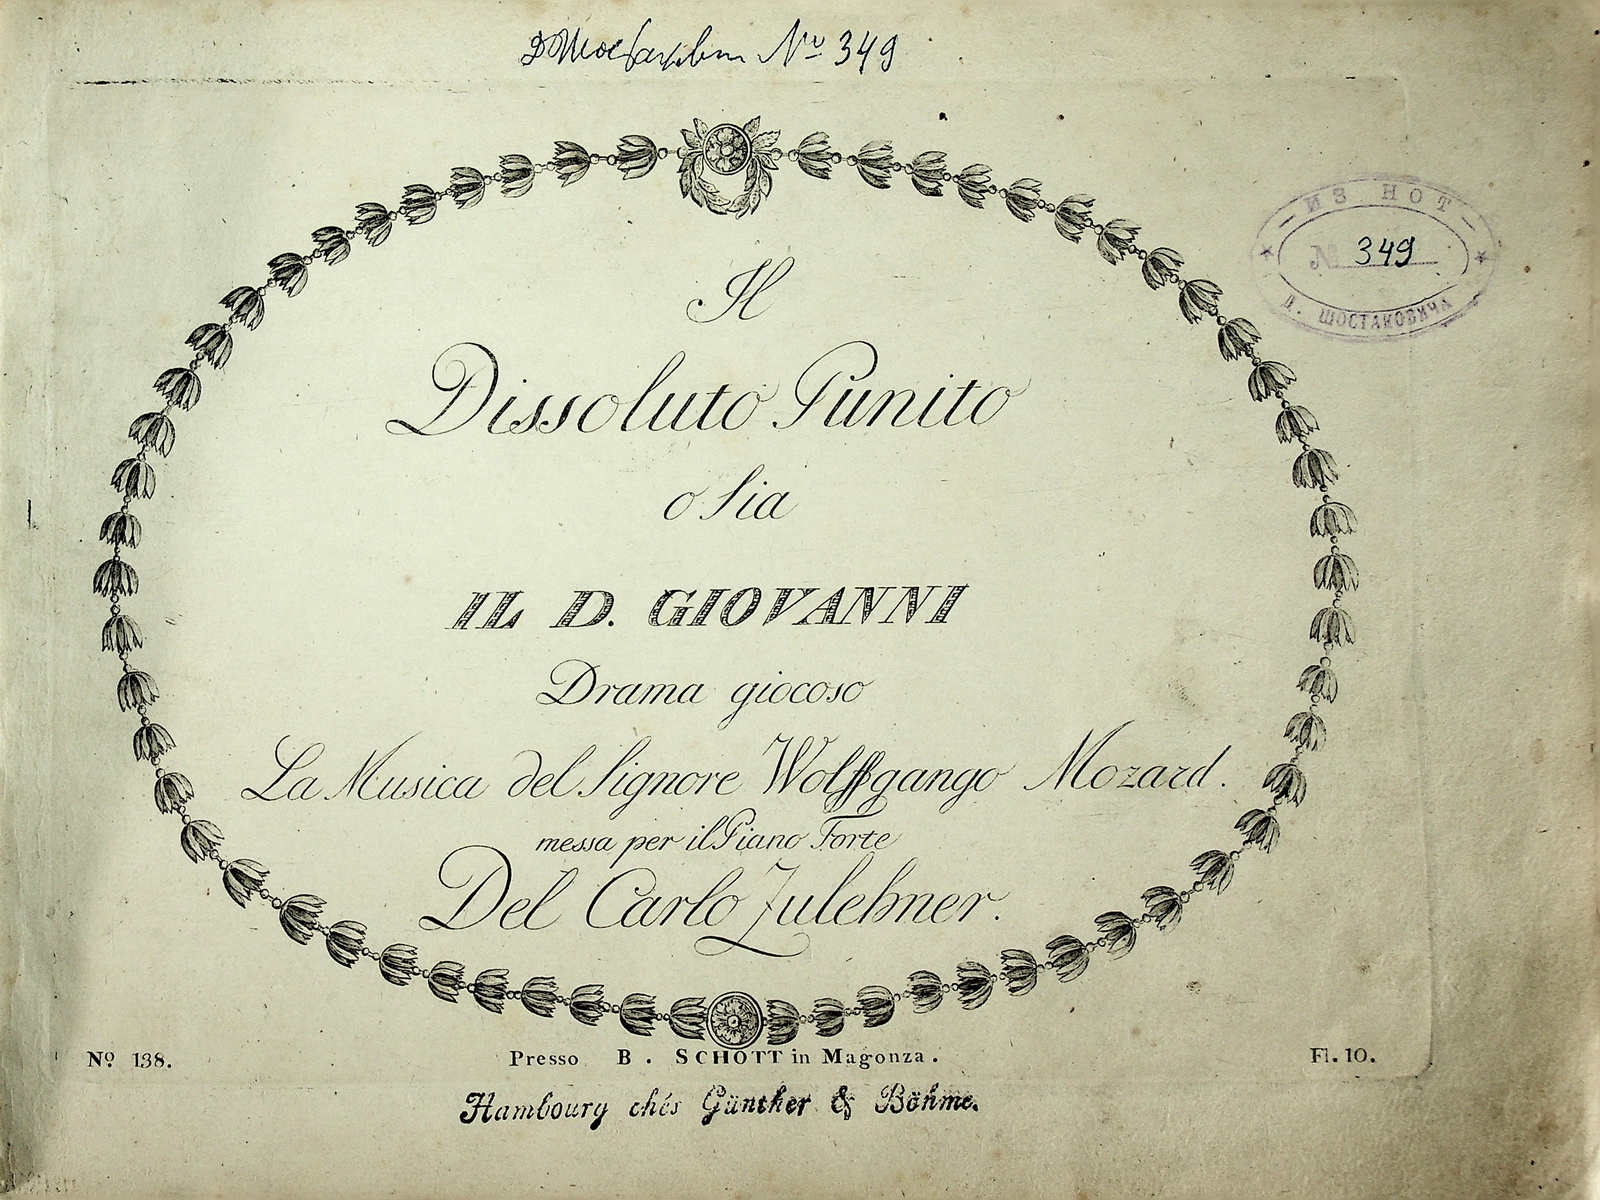 ДШостакович № 349
ИЗ НОТ
№ 349
В. ШОСТАКОВИЧА
Il
Dissoluto Punito
o sia
IL D. GIOVANNI
Drama giocoso
La Musica del Signore Wolffgango Mozard.
messa per il Piano Forte
Del Carlo Zulehner.
Nº 138.
Presso B. SCHOTT in Magonza.
Fl. 10.
Hambourg chés Günther & Böhme.